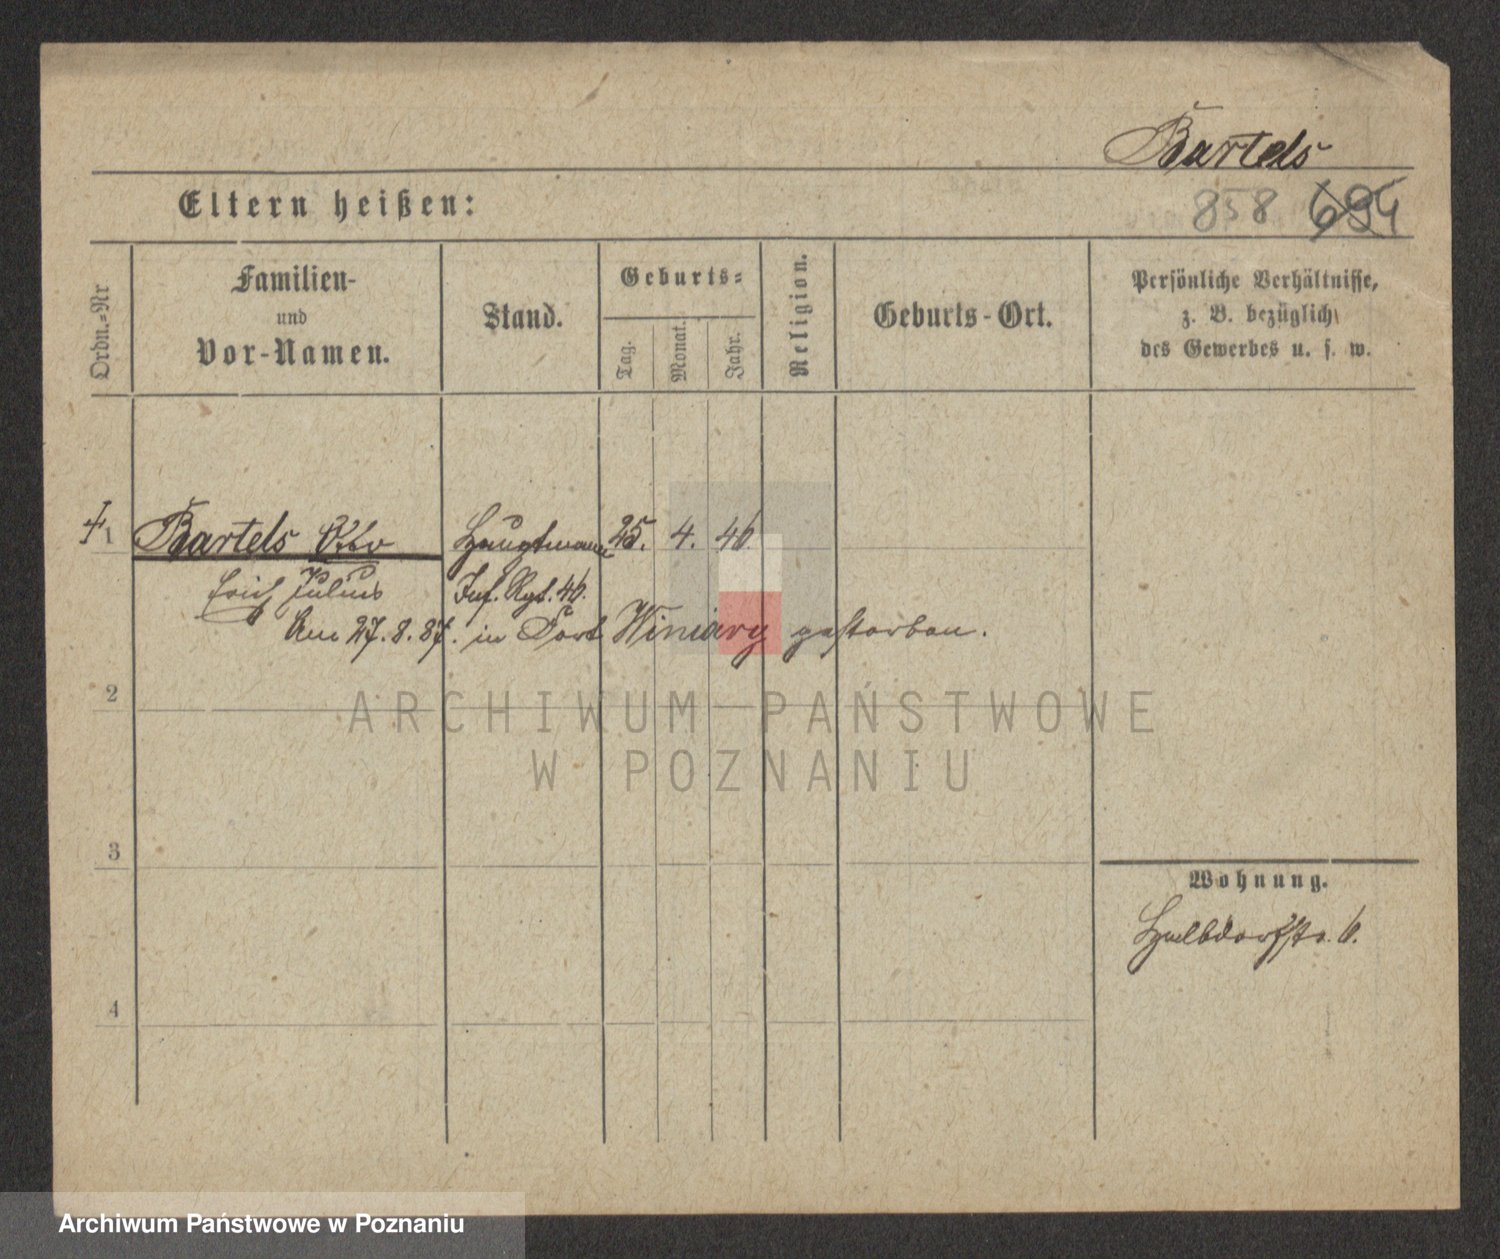 Bartels
Eltern heißen:
858 694
Ordn.-Nr
Familien-
und
Vor-Namen.
Stand.
Geburts-
Tag.
Monat.
Jahr.
Religion.
Geburts-Ort.
Persönliche Verhältnisse,
z. B. bezüglich
des Gewerbes u. s. w.
1 Bartels Otto Hauptmann 25. 4. 46.
Erich Julius Inf. Rgt. 46.
Am 27.8.87. in Fort Winiary gestorben.
2
ARCHIWUM PAŃSTWOWE
W POZNANIU
3
Wohnung.
Halbdorfstr. 6.
4
Archiwum Państwowe w Poznaniu